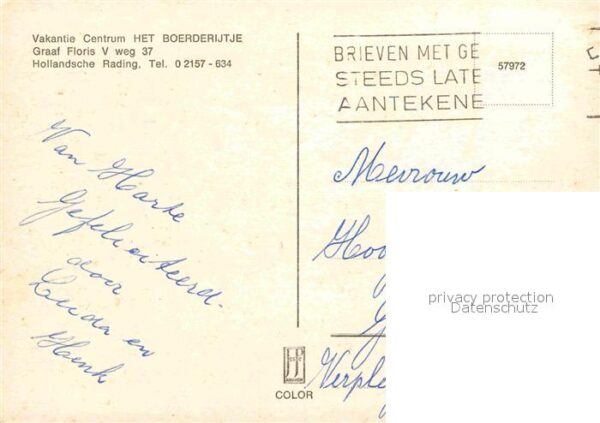 Vakantie Centrum HET BOERDERIJTJE
Graaf Floris V weg 37
Hollandsche Rading, Tel. 0 2157 - 634
BRIEVEN MET GE
STEEDS LATE
AANTEKENE
57972
Van Harte
Gefeliciteerd
door
en
Henk
Mevrouw
Hoo
Verple
privacy protection
Datenschutz
COLOR